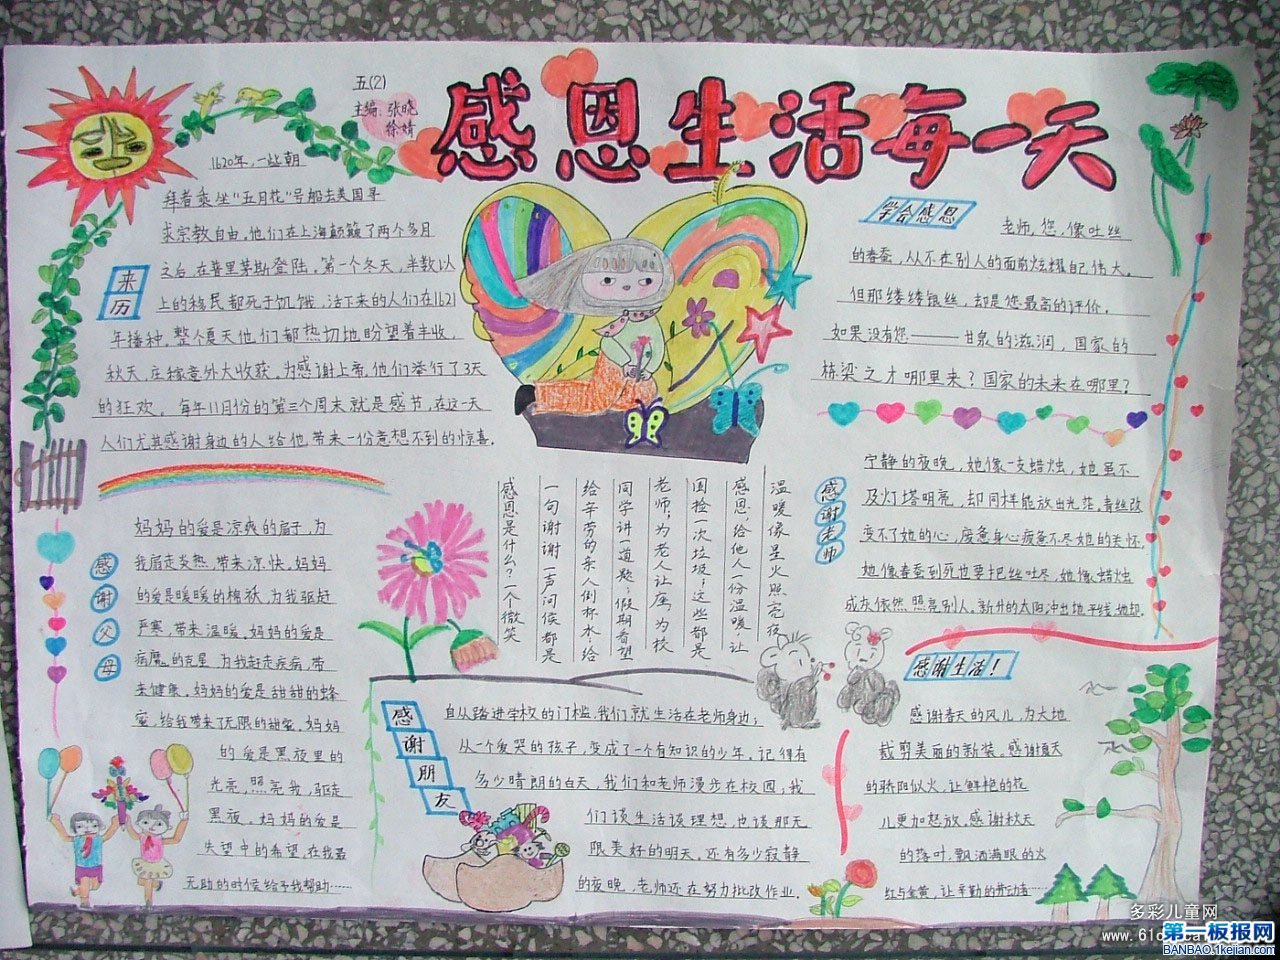 五(2)
主编: 张晓
徐婧
感恩生活每一天
来历
1620年,一些朝
拜者乘坐"五月花"号船去美国寻
求宗教自由,他们在上海颠簸了两个多月
之后,在普里茅斯登陆。第一个冬天,半数以
上的移民都死于饥饿,活下来的人们在1621
年播种,整个夏天他们都热切地盼望着丰收,
秋天,庄稼意外大收获,为感谢上帝,他们举行了3天
的狂欢。每年11月份的第三个周末就是感节,在这一天
人们尤其感谢身边的人给他带来一份意想不到的惊喜。
学会感恩
老师,您,像吐丝
的春蚕,从不在别人的面前炫耀自己伟大。
但那缕缕银丝,却是您最高的评价。
如果没有您——甘泉的滋润,国家的
栋梁之才哪里来?国家的未来在哪里?
感谢老师
宁静的夜晚,她像一支蜡烛,她虽不
及灯塔明亮,却同样能放出光茫,青丝改
变不了她的心,疲惫身心疲惫不尽她的关怀,
她像春蚕到死也要把丝吐尽,她像蜡烛
成灰依然照亮别人。新升的太阳冲出地平线,她却
感恩是什么?一个微笑
一句谢谢一声问候都是
给辛劳的亲人倒杯水给
同学讲一道题;假期看望
老师,为老人让座,为校
园捡一次垃圾;这些都是
感恩,给他人一份温暖,让
温暖像星火照亮夜
感谢父母
妈妈的爱是凉爽的扇子,为
我扇走炎热,带来凉快。妈妈
的爱是暖暖的棉袄,为我驱赶
严寒,带来温暖。妈妈的爱是
病魔的克星,为我赶走疾病,带
来健康。妈妈的爱是甜甜的蜂
蜜,给我带来了无限的甜蜜。妈妈
的爱是黑夜里的
光亮,照亮我,驱走
黑夜。妈妈的爱是
失望中的希望,在我最
无助的时候给予我帮助……
感谢朋友
自从踏进学校的门槛,我们就生活在老师身边;
从一个爱哭的孩子,变成了一个有知识的少年。记得有
多少晴朗的白天,我们和老师漫步在校园,我
们谈生活谈理想,也谈那无
限美好的明天。还有多少寂静
的夜晚,老师还在努力批改作业。
感谢生活!
感谢春天的风儿,为大地
裁剪美丽的新装。感谢夏天
的骄阳似火,让鲜艳的花
儿更加怒放,感谢秋天
的落叶,飘洒满眼的火
红与金黄,让辛勤的劳动者……
多彩儿童网
www.61c
第一板报网
BANBAO.1kejian.com